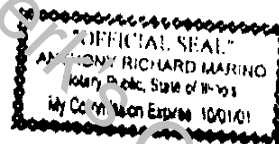 "OFFICIAL SEAL"
ANTHONY RICHARD MARINO
Notary Public, State of Illinois
My Commission Expires 10/01/01